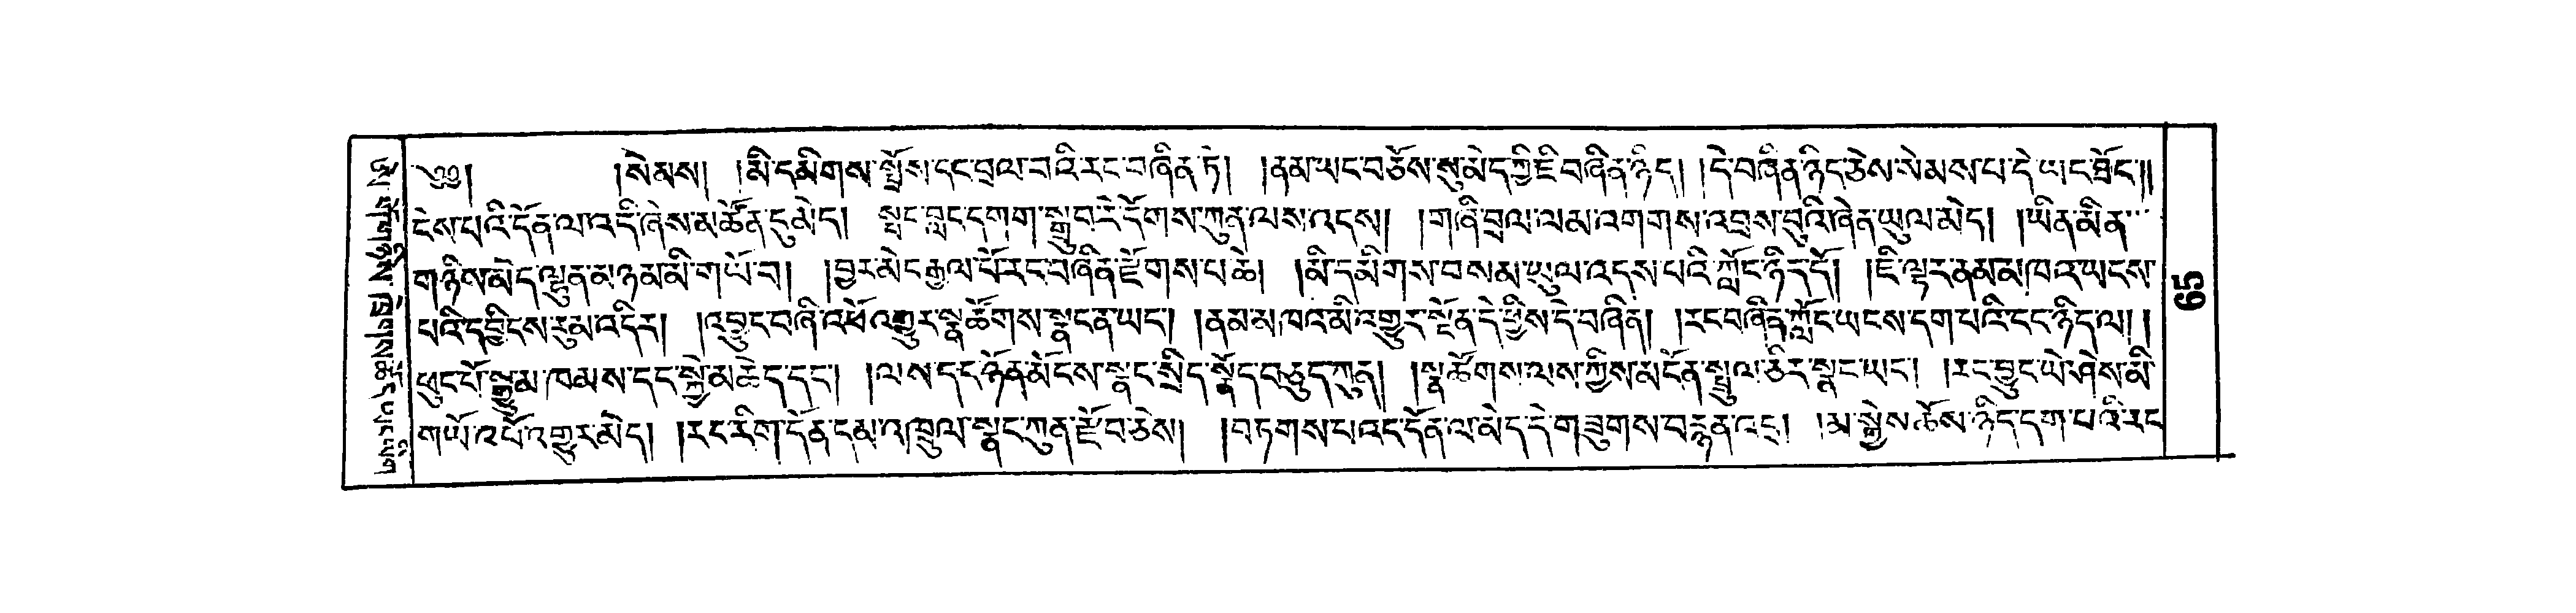 ༄༅། །སེམས། །མི་དམིགས་སྤྲོས་དང་བྲལ་བའི་རང་བཞིན་ཏེ། །ནམ་ཡང་བཅོས་སུ་མེད་ཀྱི་ཇི་བཞིན་ཉིད། །དེ་བཞིན་ཉིད་ཅེས་སེམས་པ་དེ་ཡང་ཐོང་།།
ངེས་པའི་དོན་ལ་འདི་ཞེས་མཚོན་དུ་མེད། སྤང་བླང་དགག་སྒྲུབ་རེ་དོགས་ཀུན་ལས་འདས། །གཞི་བྲལ་ལམ་འགགས་འབྲས་བུའི་ཞེན་ཡུལ་མེད། །ཡིན་མིན་
གཉིས་མེད་ལྷུན་མཉམ་མི་གཡོ་བ། །བྱར་མེད་རྒྱལ་པོ་རང་བཞིན་རྫོགས་པ་ཆེ། །མི་དམིགས་བསམ་ཡུལ་འདས་པའི་ཀློང་ཉིད་དོ། །ཇི་ལྟར་ནམ་མཁའ་ཡངས་
པའི་དབྱིངས་རུམ་འདིར། །འབྱུང་བཞི་འཕོ་འགྱུར་སྣ་ཚོགས་སྣང་ན་ཡང་། །ནམ་མཁའ་མི་འགྱུར་སྔོན་དེ་ཕྱིས་དེ་བཞིན། །རང་བཞིན་ཀློང་ཡངས་དག་པའི་དང་ཉིད་ལ། །
ཕུང་པོ་ལྔ་རྣམ་ཁམས་དང་སྐྱེ་མཆེད་དང་། །ལས་དང་ཉོན་མོངས་སྣང་སྲིད་སྣོད་བཅུད་ཀུན། །སྣ་ཚོགས་ལས་ཀྱིས་མངོན་སྤྲུལ་ཅིར་སྣང་ཡང་། །རང་བྱུང་ཡེ་ཤེས་མི་
གཡོ་འཕོ་འགྱུར་མེད། །རང་རིག་དོན་དམ་འཁྲུལ་སྣང་ཀུན་རྫོབ་ཅེས། །བཏགས་པའང་དོན་ལ་མེད་དེ་གཟུགས་བརྙན་འདྲ། །མ་སྐྱེས་ཆོས་ཉིད་དག་པའི་རང
65